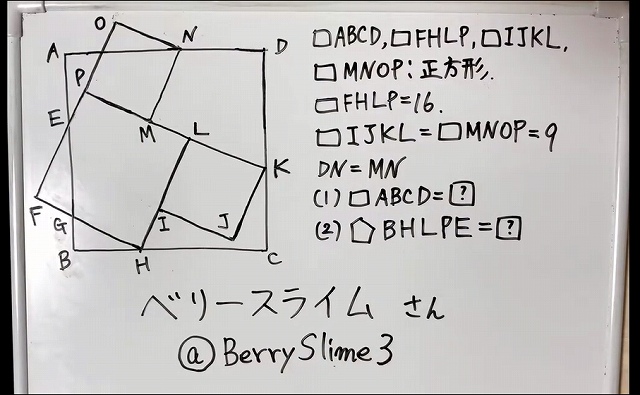 O
N
A
D
□ABCD,□FHLP,□IJKL,
□MNOP:正方形.
P
E
M
L
K
□FHLP=16.
□IJKL=□MNOP=9
DN=MN
F
G
I
J
(1)□ABCD=?
(2)⬠BHLPE=?
B
H
C
ベリースライム さん
@BerrySlime3